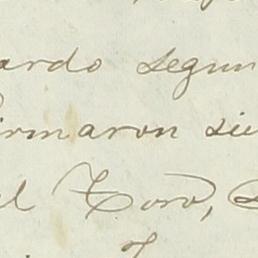 ardo segun
firmaron sie
el Toro,